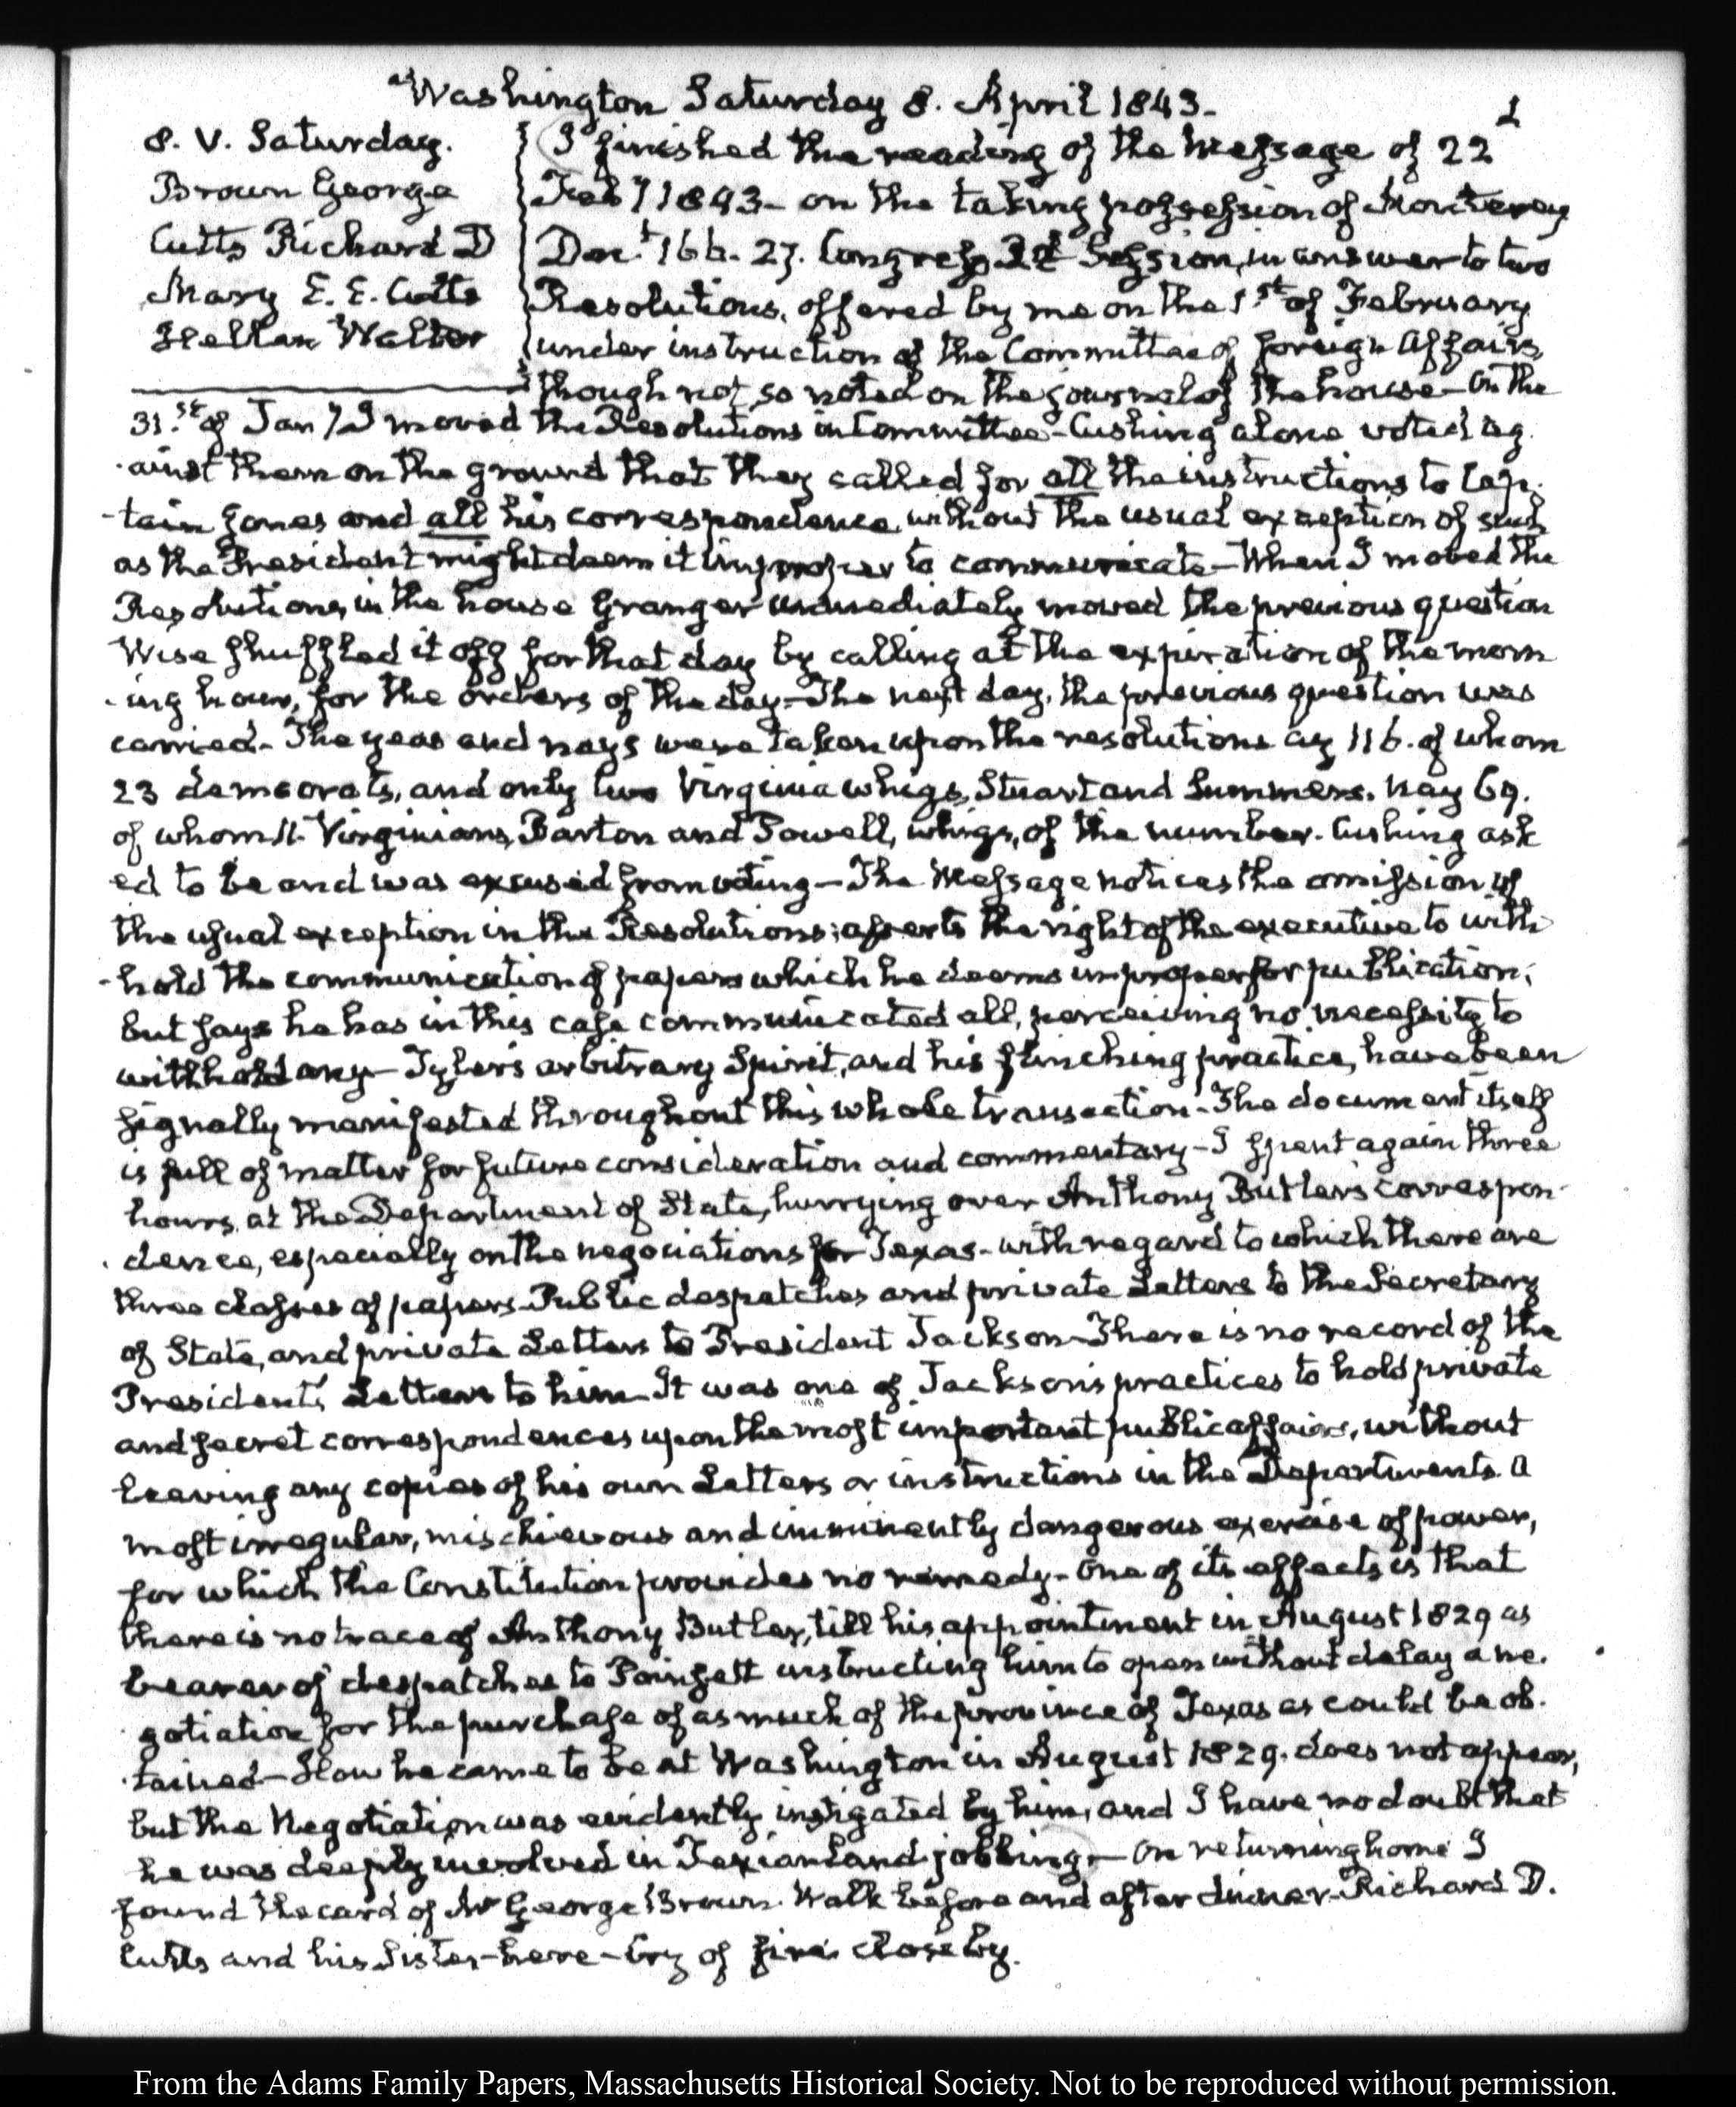 Washington Saturday 8. April 1843.
1
8. V. Saturday.
Brown George
Cutts Richard D
Mary E. E. Cutts
Hellen Walter
I finished the reading of the Message of 22
Feby 1843 - on the taking possession of Monterey
Doct. 166. 27. Congress 3d Session, in answer to two
Resolutions, offered by me on the 1st of February
under instruction of the Committee of foreign Affairs,
though not so noted on the journal of the house - On the
31.st of Jany I moved the Resolutions in Committee - Cushing alone voted ag
ainst them on the ground that they called for all the instructions to Cap-
-tain Jones and all his correspondence without the usual exception of such
as the President might deem it improper to communicate - When I moved the
Resolutions, in the house Granger immediately moved the previous question
Wise shuffled it off for that day by calling at the expiration of the morn
-ing hour, for the orders of the day - The next day, the previous question was
carried - The yeas and nays were taken upon the resolutions ay 116. of whom
23 democrats, and only two Virginia whigs, Stuart and Summers. nay 69.
of whom 11 Virginians, Barton and Powell, whigs, of the number. Cushing ask
ed to be and was excused from voting - The Message notices the omission of
the usual exception in the Resolutions; asserts the right of the executive to with
-hold the communication of papers which he deems improper for publication;
but says he has in this case communicated all, perceiving no necessity to
withhold any - Tyler's arbitrary Spirit, and his flinching practice, have been
signally manifested throughout this whole transaction - The document itself
is full of matter for future consideration and commentary - I spent again three
hours, at the Department of State, hurrying over Anthony Butler's correspon-
-dence, especially on the negociations for Texas - with regard to which there are
three classes of papers. Public despatches and private Letters to the Secretary
of State, and private Letters to President Jackson - There is no record of the
President's Letters to him - It was one of Jackson's practices to hold private
and secret correspondences upon the most important public affairs, without
leaving any copies of his own Letters or instructions in the Departments. A
most irregular, mischievous and imminently dangerous exercise of power,
for which the Constitution provides no remedy - One of its effects is that
there is no trace of Anthony Butler, till his appointment in August 1829 as
bearer of despatches to Poinsett instructing him to open without delay a ne-
gotiation for the purchase of as much of the province of Texas as could be ob-
-tained - How he came to be at Washington in August 1829. does not appear,
but the Negotiation was evidently instigated by him, and I have no doubt that
he was deeply involved in Texian land jobbing - On returning home I
found the card of Mr George Brown. Walk before and after dinner - Richard D.
Cutts and his Sister - here - Cry of fire close by.
From the Adams Family Papers, Massachusetts Historical Society. Not to be reproduced without permission.